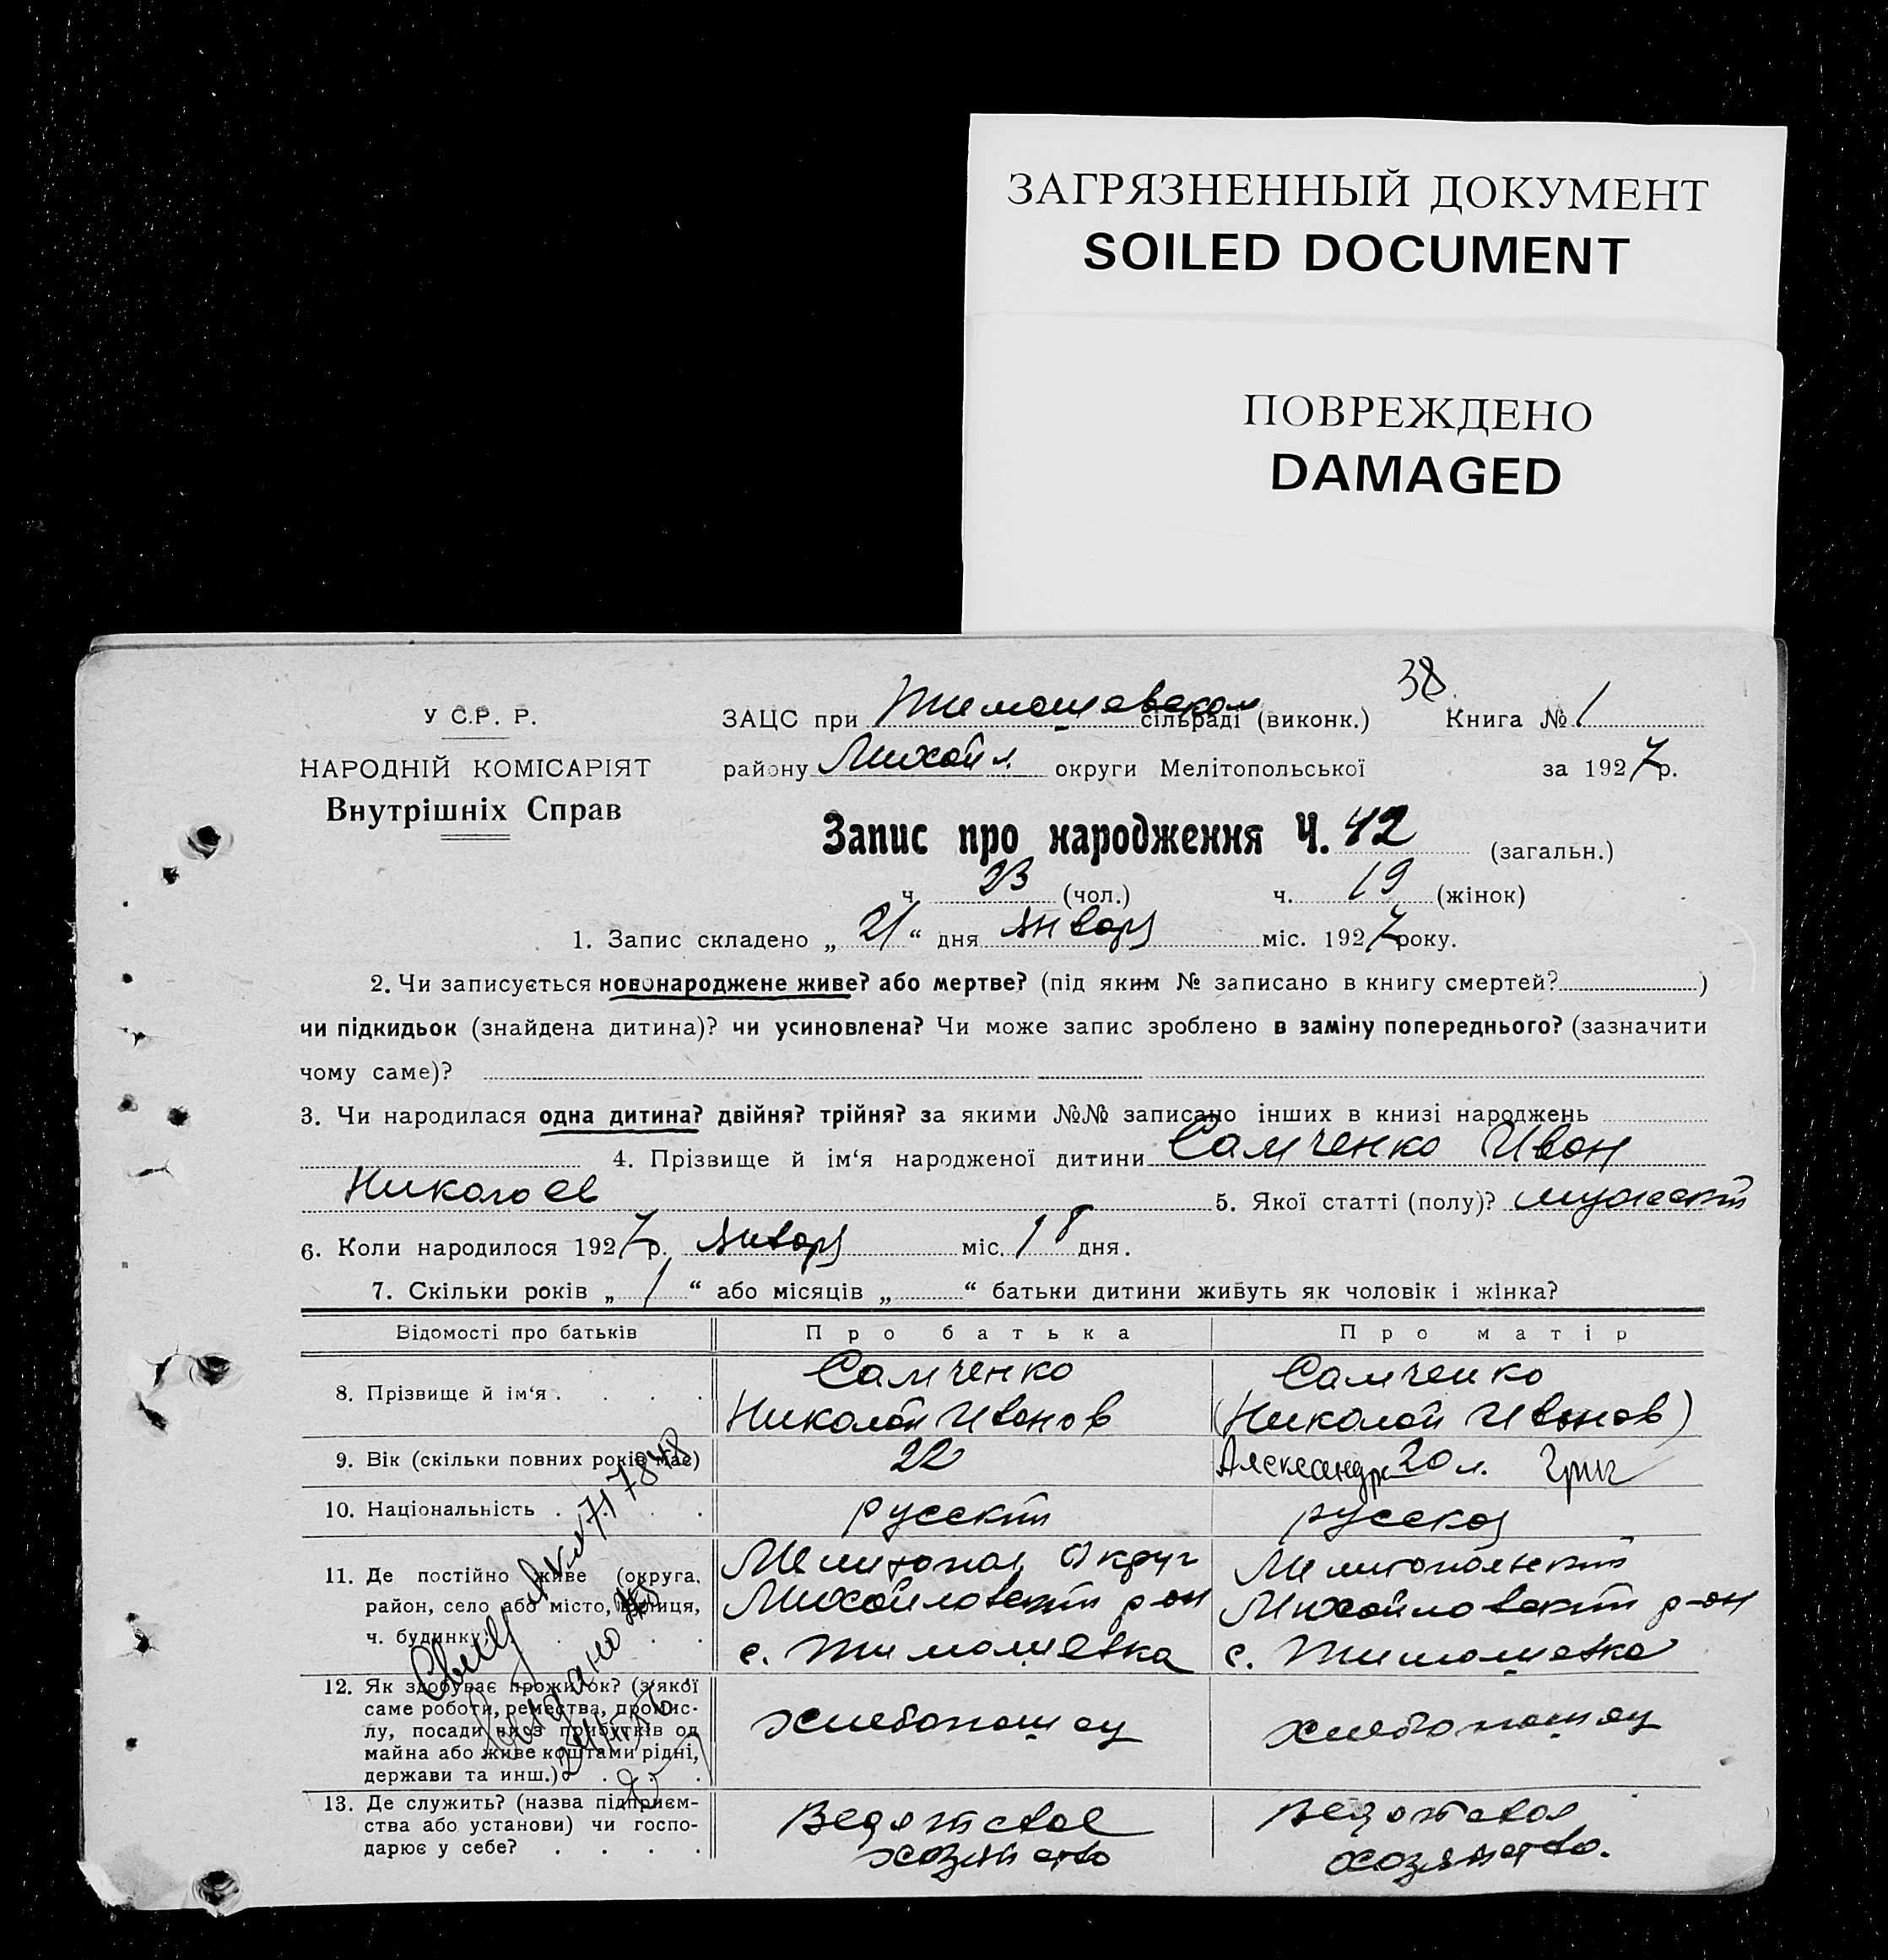 ЗАГРЯЗНЕННЫЙ ДОКУМЕНТ
SOILED DOCUMENT
ПОВРЕЖДЕНО
DAMAGED
38
У С.Р. Р.
ЗАЦС при Тимошевском сільраді (виконк.) Книга № 1
НАРОДНІЙ КОМІСАРІЯТ
району Михайл. округи Мелітопольської за 1927 р.
Внутрішніх Справ
Запис про народження Ч. 42 (загальн.)
ч. 23 (чол.) ч. 19 (жінок)
1. Запис складено „ 21 “ дня января міс. 1927 року.
2. Чи записується новонароджене живе? або мертве? (під яким № записано в книгу смертей? )
чи підкидьок (знайдена дитина)? чи усиновлена? Чи може запис зроблено в заміну попереднього? (зазначити
чому саме)?
3. Чи народилася одна дитина? двійня? трійня? за якими №№ записано інших в книзі народжень
4. Прізвище й ім‘я народженої дитини Самченко Иван
Николаев 5. Якої статті (полу)? мужский
6. Коли народилося 1927 р. января міс. 18 дня.
7. Скільки років „ 1 “ або місяців „ “ батьки дитини живуть як чоловік і жінка?
Відомості про батьків Про батька Про матір
8. Прізвище й ім‘я . . . . Самченко Самченко
Николай Иванов (Николай Иванов)
9. Вік (скільки повних років має) 22 Александра 20 л. Григ
10. Національність . . . . русский русская
11. Де постійно живе (округа, Мелитопол. Округ Мелитопольский
район, село або місто, вулиця, Михайловский р-он Михайловский р-он
ч. будинку) . . . . с. Тимошевка с. Тимошевка
12. Як здобуває прожиток? (з якої
саме роботи, ремества, промис-
лу, посади чи з прибутків од хлебопашец хлебопашец
майна або живе коштами рідні,
держави та инш.) . . .
13. Де служить? (назва підприєм-
ства або установи) чи госпо-
дарює у себе? . . . .
хозяйство хозяйство.